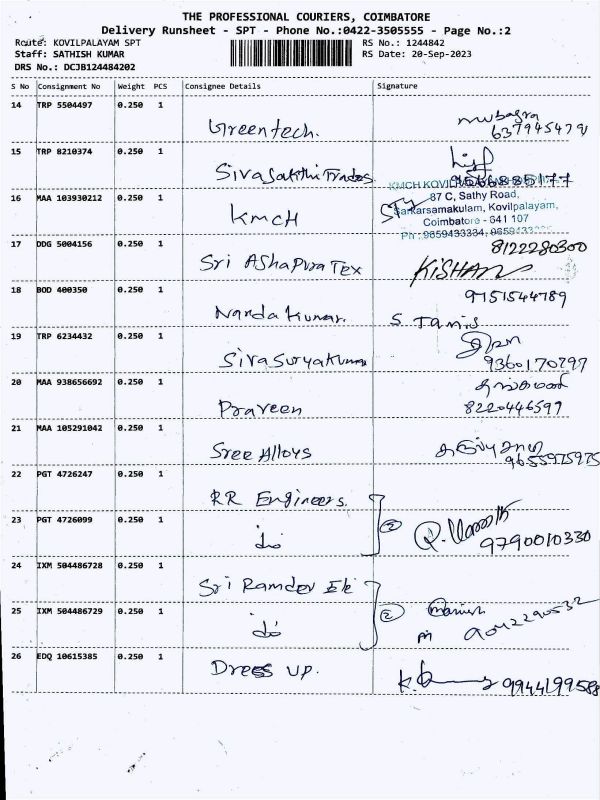 THE PROFESSIONAL COURIERS, COIMBATORE
Delivery Runsheet - SPT - Phone No.:0422-3505555 - Page No.:2
Route: KOVILPALAYAM SPT RS No.: 1244842
Staff: SATHISH KUMAR RS Date: 20-Sep-2023
DRS No.: DCJB124484202
S No Consignment No Weight PCS Consignee Details Signature
14 TRP 5504497 0.250 1
Greentech.
15 TRP 8210374 0.250 1
Sivasakthi Trades
KMCH
16 MAA 103930212 0.250 1 87 C, Sathy Road,
Sarkarsamakulam, Kovilpalayam,
KMCH Coimbatore - 641 107
Ph : 9659433334,
17 DDG 5004156 0.250 1 8122280300
Sri AShapura Tex KISHAN
18 BOD 400350 0.250 1 9151544789
Nanda Kumar. S. Tamis
19 TRP 6234432 0.250 1
Sivasuryakumar 9360170797
20 MAA 938656692 0.250 1
Praveen 8220446599
21 MAA 105291042 0.250 1
Sree Alloys 9655975975
22 PGT 4726247 0.250 1
RR Engineers.
23 PGT 4726099 0.250 1 2
do 9790010330
24 IXM 504486728 0.250 1
Sri Ramdev Ele
25 IXM 504486729 0.250 1 2 Manish
do 9042290532
26 EDQ 10615385 0.250 1
Dress up. 9944199588